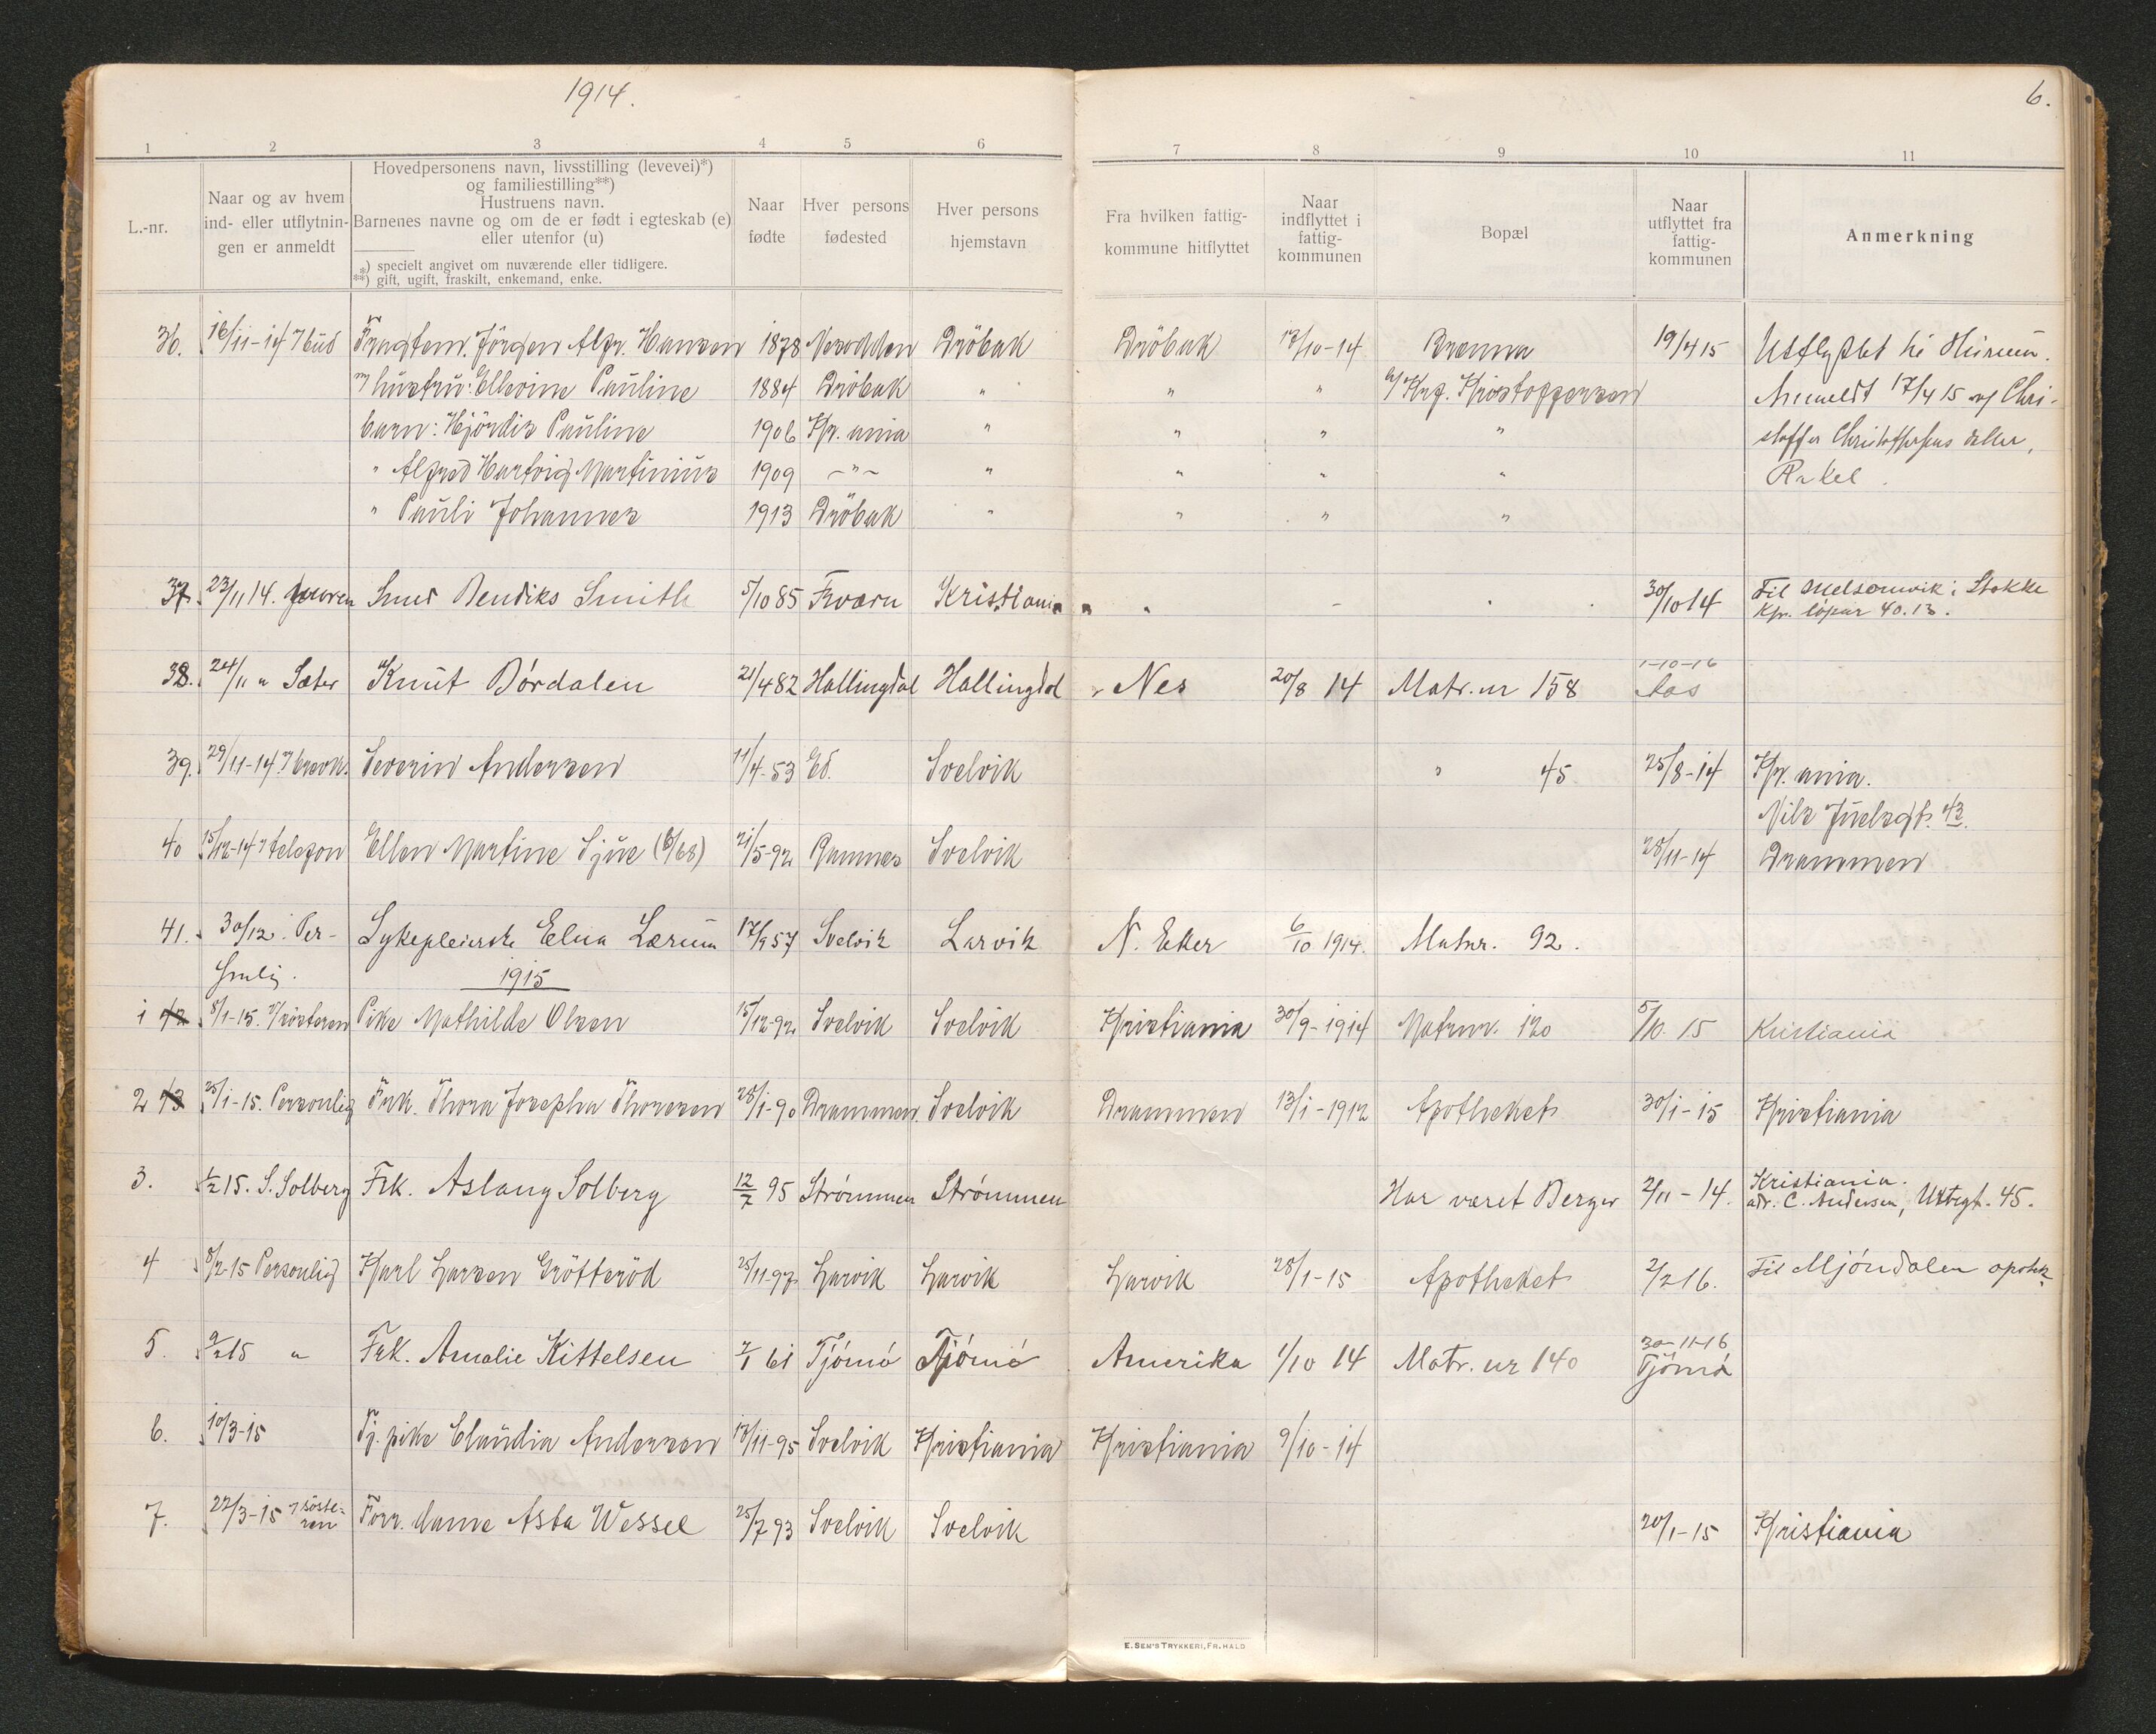 1914.
6.
1 2 3 4 5 6 7 8 9 10 11
L.-nr.
Naar og av hvem
ind- eller utflytnin-
gen er anmeldt
Hovedpersonens navn, livsstilling (levevei)*)
og familiestilling**)
Hustruens navn.
Barnenes navne og om de er født i egteskab (e)
eller utenfor (u)
*) specielt angivet om nuværende eller tidligere.
**) gift, ugift, fraskilt, enkemand, enke.
Naar
fødte
Hver persons
fødested
Hver persons
hjemstavn
Fra hvilken fattig-
kommune hitflyttet
Naar
indflyttet i
fattig-
kommunen
Bopæl
Naar
utflyttet fra
fattig-
kommunen
Anmerkning
36. 16/11-14 Jörgen Alfr. Hansen 1878 Nesodden Dröbak Dröbak 13/10-14 Brenna 19/4 15 Utflyttet til Hurum.
hustru: Ellevine Pauline 1884 Dröbak " " " Kristoffersen Anmeldt 17/4 15 af Chri-
barn: Hjördis Pauline 1906 Kr. ania " " " " stoffer Christoffersens datter,
" Alfred Hartvig Martinius 1909 -"- " " " " Rakel.
" Pauli Johannes 1913 Dröbak " " " "
37. 23/11 14. Smed Bendiks Smith 5/10 85 Kristiania 30/10 14 Til Melsomvik i Stokke
Kr. 40.13.
38. 24/11 " Sæter Knut Bórdalen 21/4 82 Hallingdal Hallingdal Nes 20/8 14 Matr. nr 158 1-10-16
Aas
39. 29/11-14 Severin Andersen 11/4-53 Svelvik " 45 25/8-14 Kr. ania.
Nils Juelsgt. 43.
40 15/12-14 telefon Ellen Martine Sjue 21/5-92 Svelvik 28/11-14 Drammen
41. 30/12. Per-
sonlig. Sykepleierske Elna Lærum 17/9 57 Svelvik Larvik N. Eker 6/10 1914. Matnr. 92.
1915
1 42 8/1-15. söstren Pike Mathilde Olsen 15/12-92 Svelvik Svelvik Kristiania 30/9-1914 Matrnr. 120 5/10. 15 Kristiania
2 43 25/1-15. Personlig Frk. Thora Josepha Thoresen 28/1-90 Drammen Svelvik Drammen 13/1-1912 Apotheket 30/1-15 Kristiania
3. 1/2 15. S. Solberg Frk. Aslaug Solberg 12/7 95 Strómmen Strómmen Har været Berger 2/11-14. Kristiania.
adr. C. Andersen, 45.
4 8/2-15 Personlig Karl Larsen Grötteröd 25/11-97 Larvik Larvik Larvik 28/1-15 Apotheket 2/2 16. Til Mjóndalen apotek
5. 9/2 15 " Frk. Amalie Kittelsen 2/1 61 Tjómó Tjómó Amerika 1/10 14 Matr. nr 140 30-11-16
Tjómó
6. 10/3-15 Tj. pike Claudia Andersen 13/11-95 Svelvik Kristiania Kristiania 9/10-14
7. 22/3-15 söste-
ren Forr. dame Asta Wessel 25/7 93 Svelvik Svelvik 20/1-15 Kristiania
E. SEM'S TRYKKERI, FR.HALD